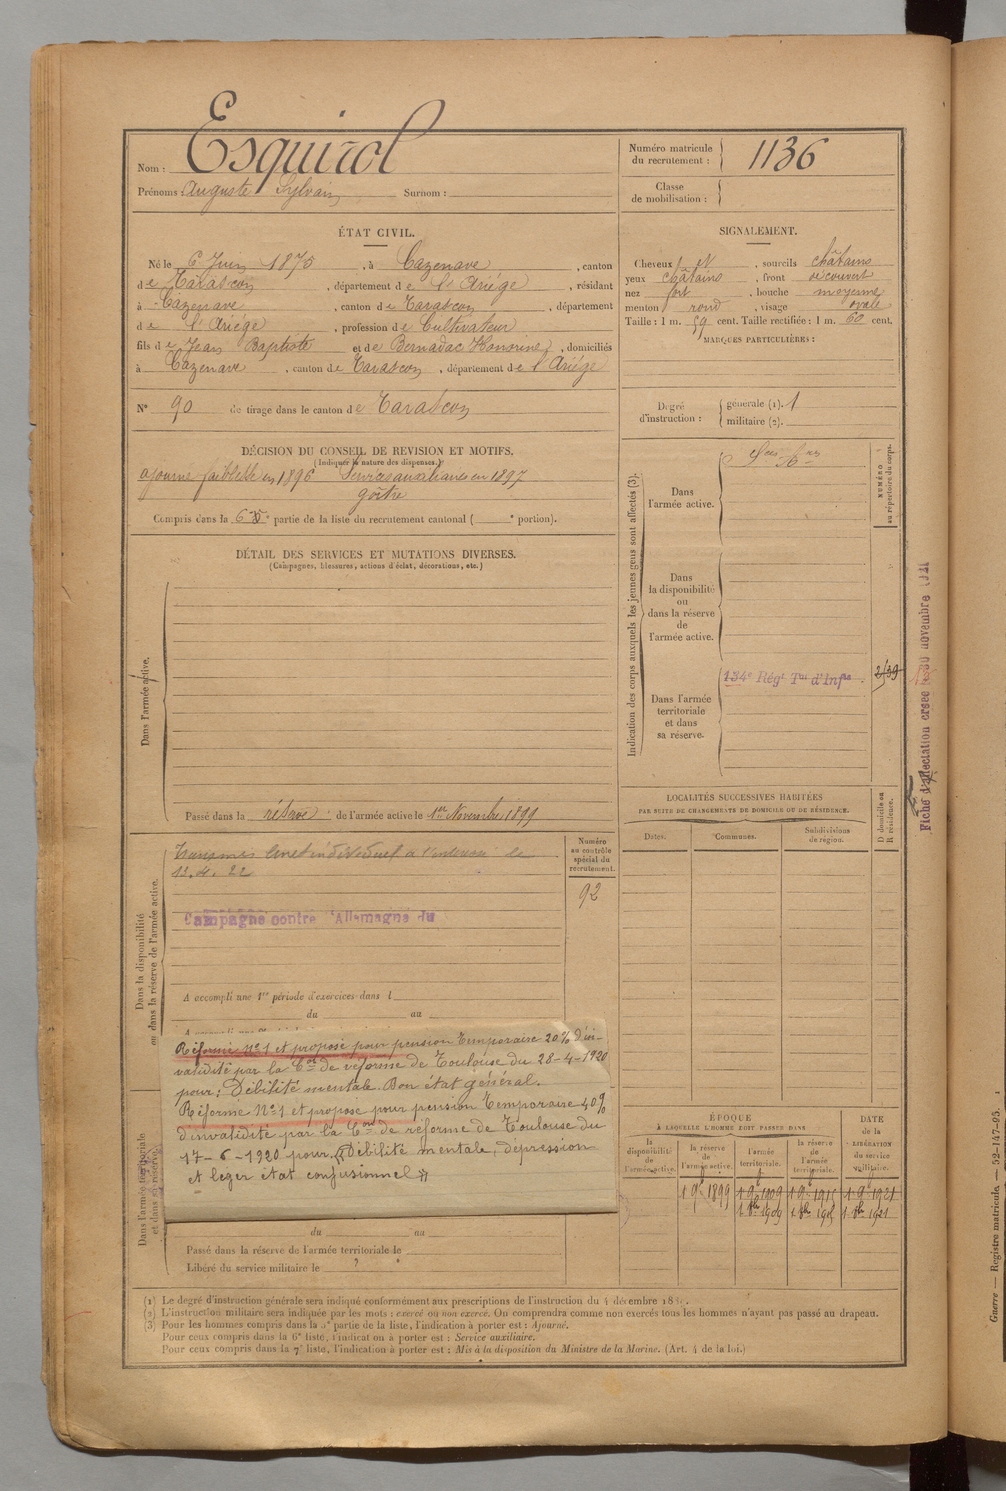 Nom : Esquirol
Prénoms : Auguste Sylvain Surnom :
Numéro matricule
du recrutement : 1136
Classe
de mobilisation :
ÉTAT CIVIL.
Né le 6 Juin 1875, à Cazenave, canton
de Tarascon, département de l'Ariége, résidant
à Cazenave, canton de Tarascon, département
de l'Ariége, profession de Cultivateur
fils de Jean Baptiste et de Bernadac Honorine, domiciliés
à Cazenave, canton de Tarascon, département de l'Ariége
N° 90 de tirage dans le canton de Tarascon
SIGNALEMENT.
Cheveux et, sourcils châtains
yeux châtains, front découvert
nez fort, bouche moyenne
menton rond, visage ovale
Taille : 1 m. 59 cent. Taille rectifiée : 1 m. 60 cent.
MARQUES PARTICULIÈRES :
Degré
d'instruction :
générale (1). 1
militaire (2).
DÉCISION DU CONSEIL DE REVISION ET MOTIFS.
(Indiquer la nature des dispenses.)
ajourné faiblesse en 1896 Services auxiliaires en 1897
goître
Compris dans la 6e partie de la liste du recrutement cantonal ( e portion).
DÉTAIL DES SERVICES ET MUTATIONS DIVERSES.
(Campagnes, blessures, actions d'éclat, décorations, etc.)
Dans l'armée active.
Passé dans la réserve de l'armée active le 1er Novembre 1899
Indication des corps auxquels les jeunes gens sont affectés (3).
NUMÉRO
au répertoire du corps.
Dans
l'armée active.
Dans
la disponibilité
ou
dans la réserve
de
l'armée active.
Dans l'armée
territoriale
et dans
sa réserve.
134e Régt Tal d'Infie
2/39
Fiche d'affectation créée le 30 novembre
Dans la disponibilité
ou dans la réserve de l'armée active.
12.4.22
Campagne contre l'Allemagne du
Numéro
au contrôle
spécial du
recrutement.
92
A accompli une 1re période d'exercices dans l
du au
Réformé N°1 et proposé pour pension temporaire 20% d'in-
validité par la Con de réforme de Toulouse du 28-4-1920
pour : Débilité mentale. Bon état général.
Réformé N°1 et proposé pour pension temporaire 40%
d'invalidité par la Con de réforme de Toulouse du
17-6-1920 pour "Débilité mentale, dépression
et léger état confusionnel"
Dans l'armée territoriale
et dans sa réserve.
du au
Passé dans la réserve de l'armée territoriale le
Libéré du service militaire le ?
LOCALITÉS SUCCESSIVES HABITÉES
PAR SUITE DE CHANGEMENTS DE DOMICILE OU DE RÉSIDENCE.
D domicile ou
R résidence.
Dates. Communes. Subdivisions
de région.
ÉPOQUE
À LAQUELLE L'HOMME DOIT PASSER DANS
DATE
de la
LIBÉRATION
du service
militaire.
la
disponibilité
de
l'armée active.
la réserve
de
l'armée active.
l'armée
territoriale.
la réserve
de
l'armée
territoriale.
1 9bre 1899 1 9bre 1909 1 9bre 1915 1 9bre 1921
(1) Le degré d'instruction générale sera indiqué conformément aux prescriptions de l'instruction du 4 décembre
(2) L'instruction militaire sera indiquée par les mots : exercé ou non exercé. On comprendra comme non exercés tous les hommes n'ayant pas passé au drapeau.
(3) Pour les hommes compris dans la 5e partie de la liste, l'indication à porter est : Ajourné.
Pour ceux compris dans la 6e liste, l'indication à porter est : Service auxiliaire.
Pour ceux compris dans la 7e liste, l'indication à porter est : Mis à la disposition du Ministre de la Marine. (Art. 4 de la loi.)
Guerre — Registre matricule. — 52-147-93.